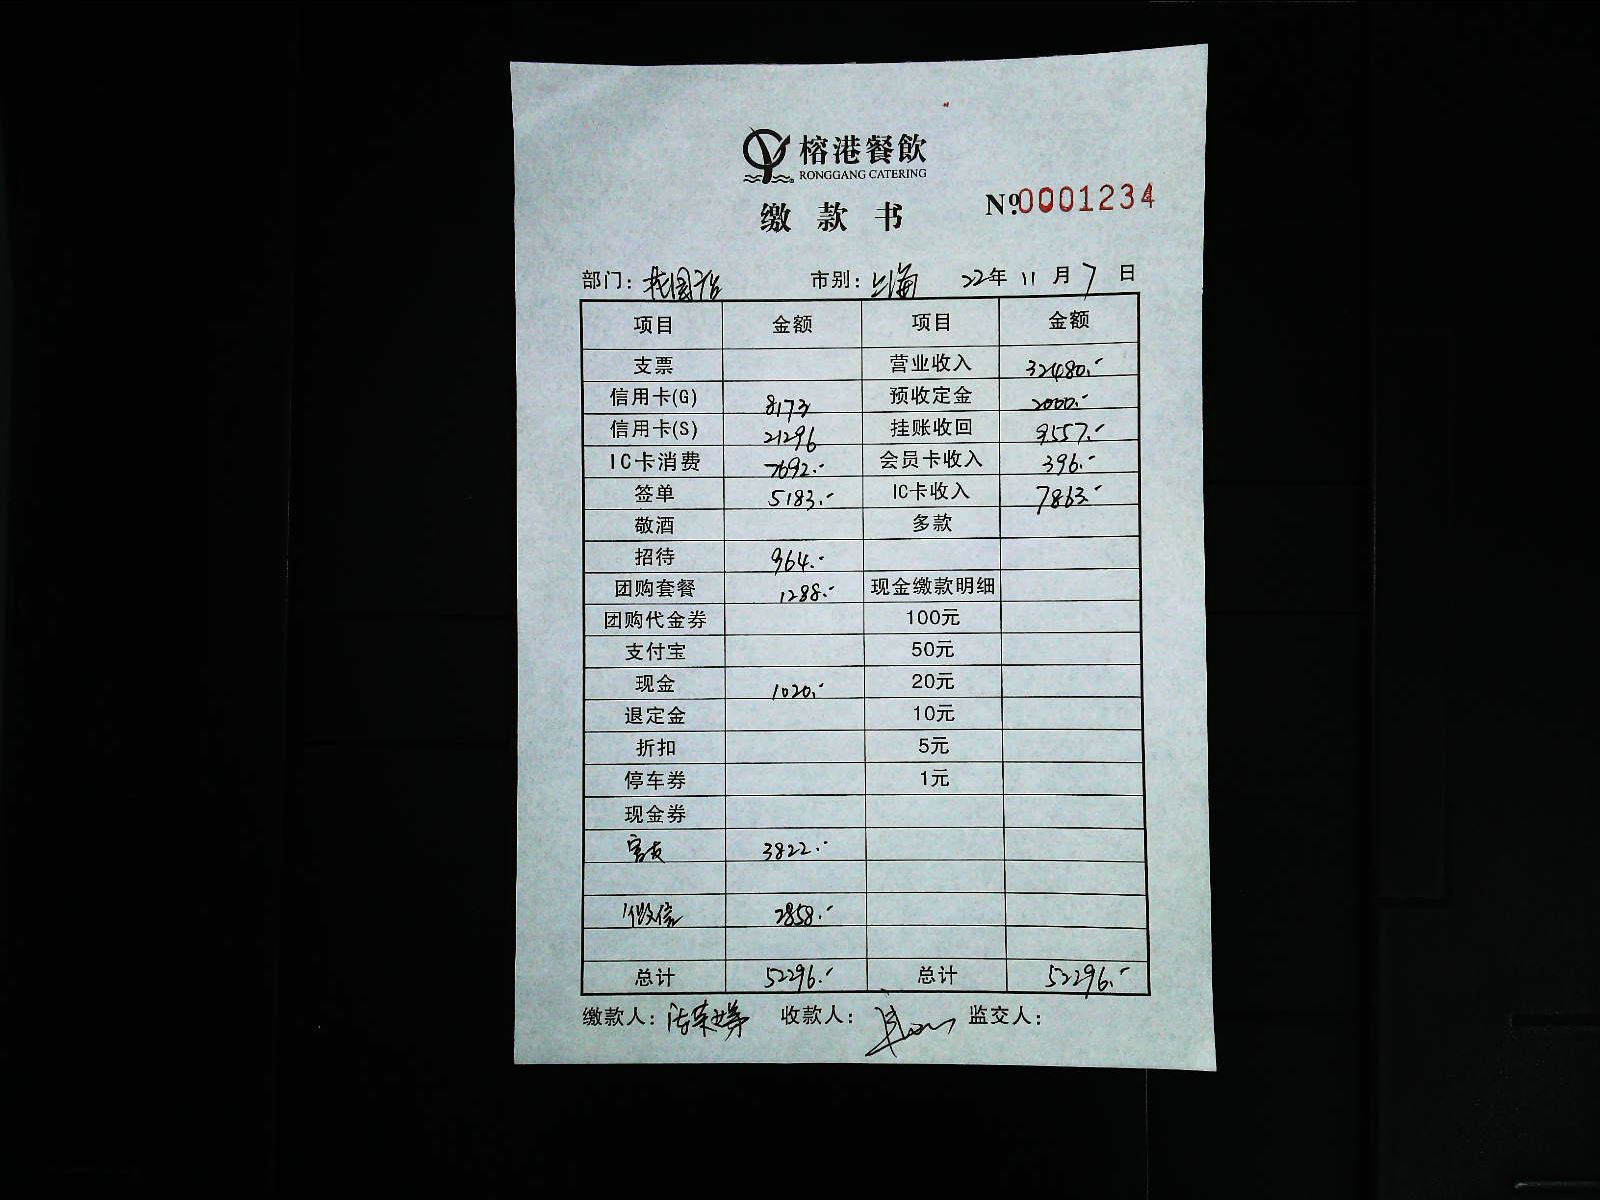 榕港餐飲
RONGGANG CATERING
缴款书 Nº 0001234
部门: 市别: 上海 22年 11月 7日
项目 金额 项目 金额
支票 营业收入 32480.-
信用卡(G) 8173 预收定金 2000.-
信用卡(S) 21296 挂账收回 9557.-
IC卡消费 7692.- 会员卡收入 396.-
签单 5183.- IC卡收入 7863.-
敬酒 多款
招待 964.-
团购套餐 1288.- 现金缴款明细
团购代金券 100元
支付宝 50元
现金 1020.- 20元
退定金 10元
折扣 5元
停车券 1元
现金券
3822.-
微信 2858.-
总计 52296.- 总计 52296.-
缴款人: 收款人: 监交人: